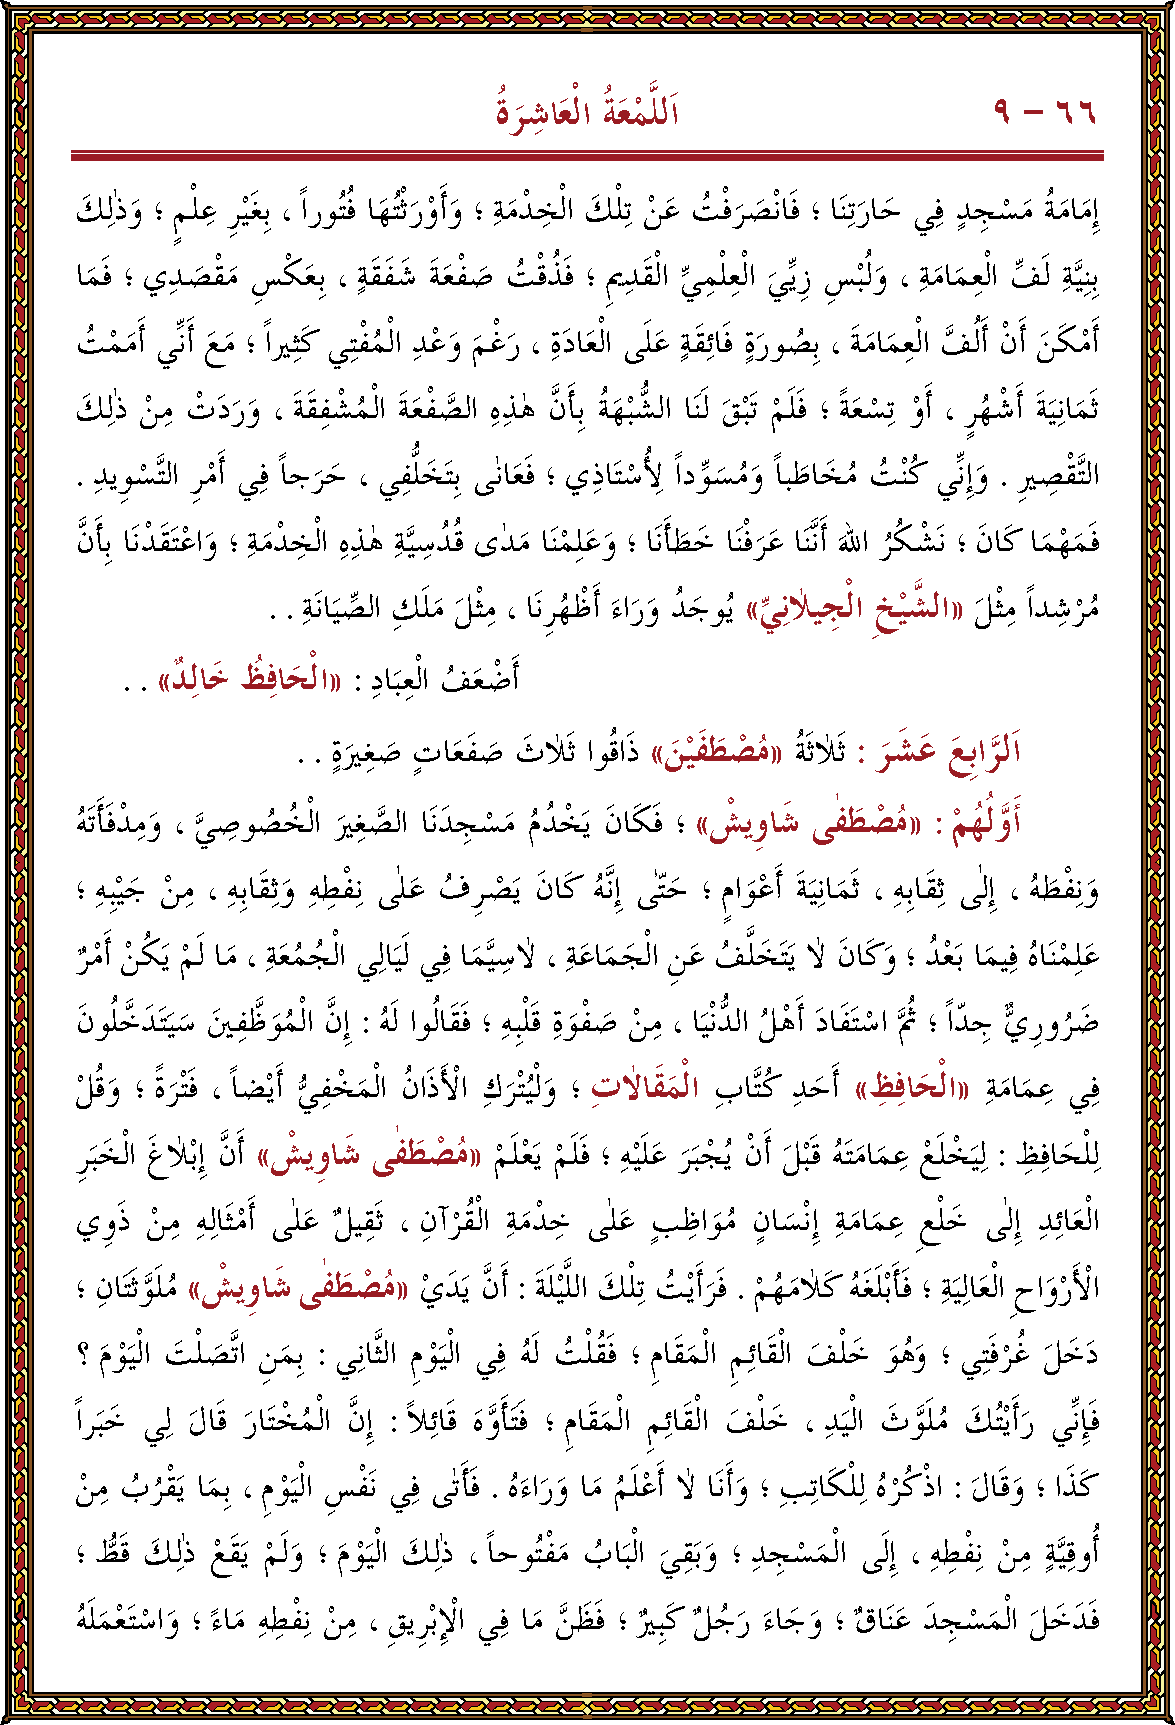 ٦٦ – ٩ اَللَّمْعَةُ الْعَاشِرَةُ
إِمَامَةُ مَسْجِدٍ فِي حَارَتِنَا ؛ فَانْصَرَفْتُ عَنْ تِلْكَ الْخِدْمَةِ ؛ وَأَوْرَثْتُهَا فُتُوراً ، بِغَيْرِ عِلْمٍ ؛ وَذٰلِكَ
بِنِيَّةِ لَفِّ الْعِمَامَةِ ، وَلُبْسِ زِيِّيَ الْعِلْمِيِّ الْقَدِيمِ ؛ فَذُقْتُ صَفْعَةَ شَفَقَةٍ ، بِعَكْسِ مَقْصَدِي ؛ فَمَا
أَمْكَنَ أَنْ أَلُفَّ الْعِمَامَةَ ، بِصُورَةٍ فَائِقَةٍ عَلَى الْعَادَةِ ، رَغْمَ وَعْدِ الْمُفْتِي كَثِيراً ؛ مَعَ أَنِّي أَمَمْتُ
ثَمَانِيَةَ أَشْهُرٍ ، أَوْ تِسْعَةً ؛ فَلَمْ تَبْقَ لَنَا الشُّبْهَةُ بِأَنَّ هٰذِهِ الصَّفْعَةَ الْمُشْفِقَةَ ، وَرَدَتْ مِنْ ذٰلِكَ
التَّقْصِيرِ . وَإِنِّي كُنْتُ مُخَاطَباً وَمُسَوِّداً لِأُسْتَاذِي ؛ فَعَانٰى بِتَخَلُّفِي ، حَرَجاً فِي أَمْرِ التَّسْوِيدِ .
فَمَهْمَا كَانَ ؛ نَشْكُرُ اللهَ أَنَّنَا عَرَفْنَا خَطَأَنَا ؛ وَعَلِمْنَا مَدٰى قُدُسِيَّةِ هٰذِهِ الْخِدْمَةِ ؛ وَاعْتَقَدْنَا بِأَنَّ
مُرْشِداً مِثْلَ «الشَّيْخِ الْجِيلَانِيِّ» يُوجَدُ وَرَاءَ أَظْهُرِنَا ، مِثْلَ مَلَكِ الصِّيَانَةِ . .
أَضْعَفُ الْعِبَادِ : «الْحَافِظُ خَالِدٌ» . .
اَلرَّابِعَ عَشَرَ : ثَلَاثَةُ «مُصْطَفَيْنَ» ذَاقُوا ثَلَاثَ صَفَعَاتٍ صَغِيرَةٍ . .
أَوَّلُهُمْ : «مُصْطَفٰى شَاوِيشْ» ؛ فَكَانَ يَخْدُمُ مَسْجِدَنَا الصَّغِيرَ الْخُصُوصِيَّ ، وَمِدْفَأَتَهُ
وَنِفْطَهُ ، إِلٰى ثِقَابِهِ ، ثَمَانِيَةَ أَعْوَامٍ ؛ حَتّٰى إِنَّهُ كَانَ يَصْرِفُ عَلٰى نِفْطِهِ وَثِقَابِهِ ، مِنْ جَيْبِهِ ؛
عَلِمْنَاهُ فِيمَا بَعْدُ ؛ وَكَانَ لَا يَتَخَلَّفُ عَنِ الْجَمَاعَةِ ، لَاسِيَّمَا فِي لَيَالِي الْجُمُعَةِ ، مَا لَمْ يَكُنْ أَمْرٌ
ضَرُورِيٌّ جِدّاً ؛ ثُمَّ اسْتَفَادَ أَهْلُ الدُّنْيَا ، مِنْ صَفْوَةِ قَلْبِهِ ؛ فَقَالُوا لَهُ : إِنَّ الْمُوَظَّفِينَ سَيَتَدَخَّلُونَ
فِي عِمَامَةِ «الْحَافِظِ» أَحَدِ كُتَّابِ الْمَقَالَاتِ ؛ وَلْيُتْرَكِ الْأَذَانُ الْمَخْفِيُّ أَيْضاً ، فَتْرَةً ؛ وَقُلْ
لِلْحَافِظِ : لِيَخْلَعْ عِمَامَتَهُ قَبْلَ أَنْ يُجْبَرَ عَلَيْهِ ؛ فَلَمْ يَعْلَمْ «مُصْطَفٰى شَاوِيشْ» أَنَّ إِبْلَاغَ الْخَبَرِ
الْعَائِدِ إِلٰى خَلْعِ عِمَامَةِ إِنْسَانٍ مُوَاظِبٍ عَلٰى خِدْمَةِ الْقُرْآنِ ، ثَقِيلٌ عَلٰى أَمْثَالِهِ مِنْ ذَوِي
الْأَرْوَاحِ الْعَالِيَةِ ؛ فَأَبْلَغَهُ كَلَامَهُمْ . فَرَأَيْتُ تِلْكَ اللَّيْلَةَ : أَنَّ يَدَيْ «مُصْطَفٰى شَاوِيشْ» مُلَوَّثَتَانِ ؛
دَخَلَ غُرْفَتِي ؛ وَهُوَ خَلْفَ الْقَائِمِ الْمَقَامِ ؛ فَقُلْتُ لَهُ فِي الْيَوْمِ الثَّانِي : بِمَنِ اتَّصَلْتَ الْيَوْمَ ؟
فَإِنِّي رَأَيْتُكَ مُلَوَّثَ الْيَدِ ، خَلْفَ الْقَائِمِ الْمَقَامِ ؛ فَتَأَوَّهَ قَائِلاً : إِنَّ الْمُخْتَارَ قَالَ لِي خَبَراً
كَذَا ؛ وَقَالَ : اذْكُرْهُ لِلْكَاتِبِ ؛ وَأَنَا لَا أَعْلَمُ مَا وَرَاءَهُ . فَأَتٰى فِي نَفْسِ الْيَوْمِ ، بِمَا يَقْرُبُ مِنْ
أُوقِيَّةٍ مِنْ نِفْطِهِ ، إِلَى الْمَسْجِدِ ؛ وَبَقِيَ الْبَابُ مَفْتُوحاً ، ذٰلِكَ الْيَوْمَ ؛ وَلَمْ يَقَعْ ذٰلِكَ قَطُّ ؛
فَدَخَلَ الْمَسْجِدَ عَنَاقٌ ؛ وَجَاءَ رَجُلٌ كَبِيرٌ ؛ فَظَنَّ مَا فِي الْإِبْرِيقِ ، مِنْ نِفْطِهِ مَاءً ؛ وَاسْتَعْمَلَهُ